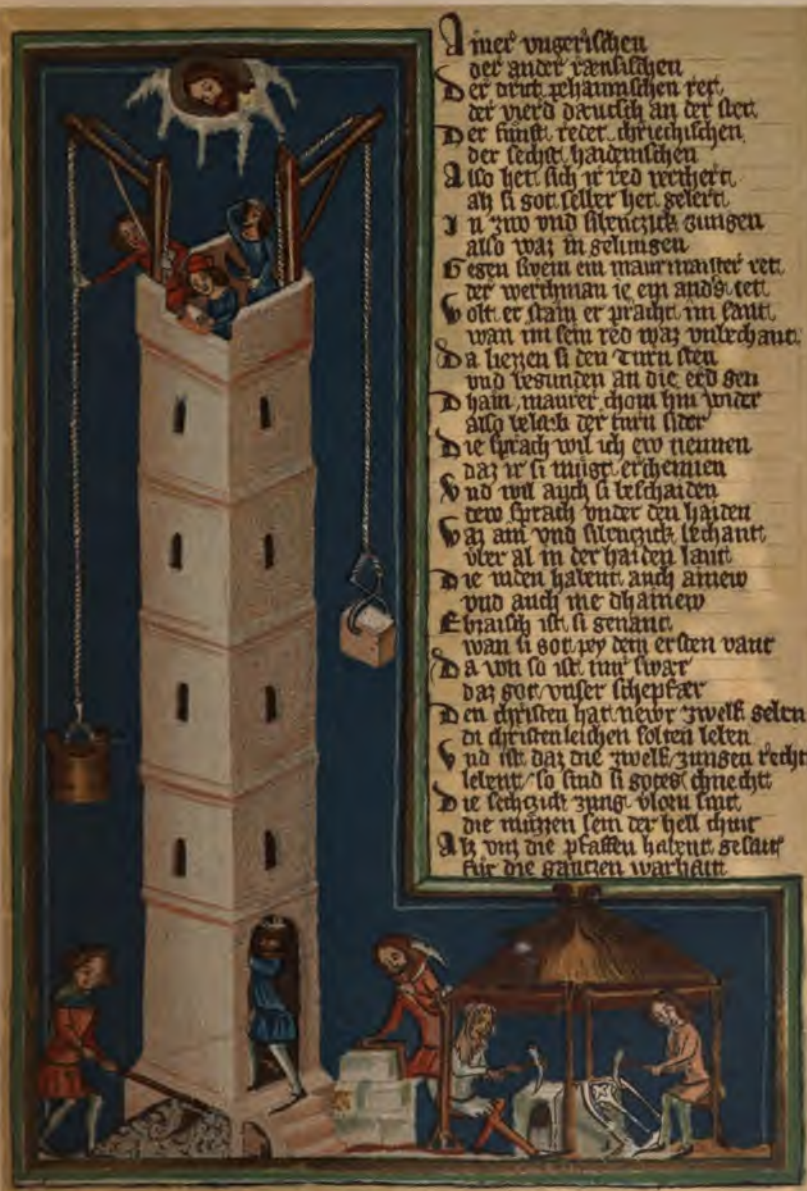 Ainer vngerischen
der ander rænsischen
Der drit pehaimischen ret
der vierd dæutsch an der stet
Der funft redet chriechischen
der sechst haidenischen
Also het sich ir red verchert
als si got selber het gelert
In zwo vnd sibenczich zungen
also waz in gelungen
Gegen swem ein maurmaister ret
der werchman ie ein anders tet
Wolt er stain er pracht im sant
wan im sein red waz vnbechant
Da liezzen si den turn sten
vnd begunden an die erd gen
Dhain maurer chom hin wider
also belaib der turn sider
Die sprach wil ich ew nennen
daz ir si mügt erchennen
Vnd wil auch si beschaiden
dew sprach vnder den haiden
Waz ain vnd sibenczich bechant
vber al in der haiden lant
Die iuden habent auch ainew
vnd auch nie dhainew
Ebraisch ist si genant
wan si got pey dem ersten vant
Da von so ist mir swær
daz got vnser schepfær
Den christen hat newr zwelf geben
di christenleichen solten leben
Vnd ist daz die zwelf zungen recht
lebent so sind si gotes chnecht
Die sechczich zung vlorn sint
die müzzen sein der hell chint
Alz vns die pfaffen habent gesait
für die gantzen warhait